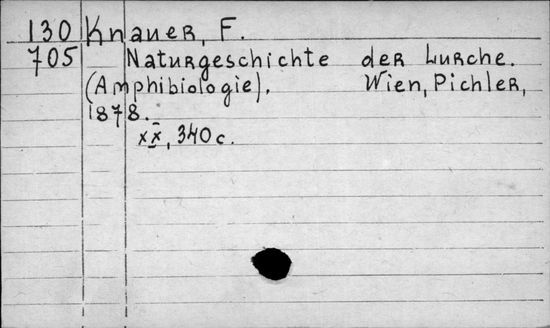 130 Knauer, F.
705 Naturgeschichte der Lurche.
(Amphibiologie). Wien, Pichler,
1878.
XX, 340 c.